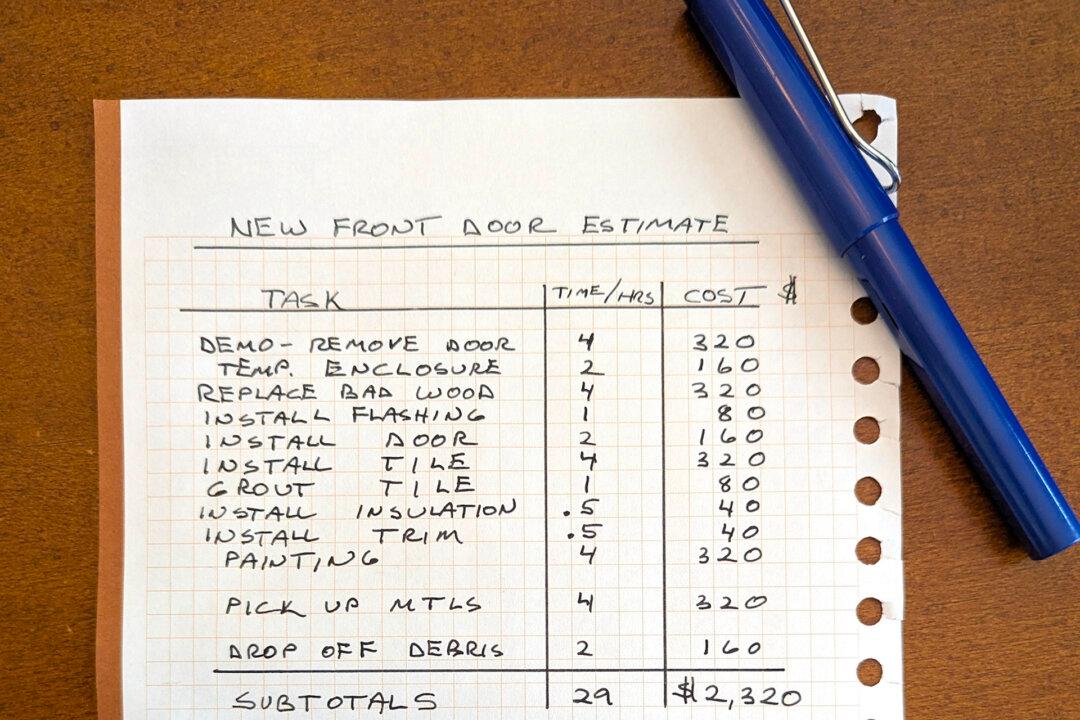 NEW FRONT DOOR ESTIMATE
TASK TIME/HRS COST $
DEMO - REMOVE DOOR 4 320
TEMP. ENCLOSURE 2 160
REPLACE BAD WOOD 4 320
INSTALL FLASHING 1 80
INSTALL DOOR 2 160
INSTALL TILE 4 320
GROUT TILE 1 80
INSTALL INSULATION .5 40
INSTALL TRIM .5 40
PAINTING 4 320
PICK UP MTLS 4 320
DROP OFF DEBRIS 2 160
SUBTOTALS 29 $2,320